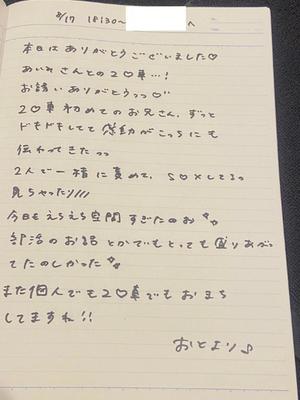 8/17 18:30〜 へ
本日はありがとうございました♡
あいれさんとの2♡車…!
お誘いありがとうっっ♡"
2♡車初めてのお兄さん、ずっと
ドキドキしてて感動がこっちにも
伝わってきたっっ
2人で一緒に責めて、S○×してるっ
見ちゃったり///
今日もえちえち空間すぎたのぉ
部活のお話とかでもとっても盛りあがっ
てたのしかった
また個人でも2♡車でもおまち
してますね!!
おとまり♪